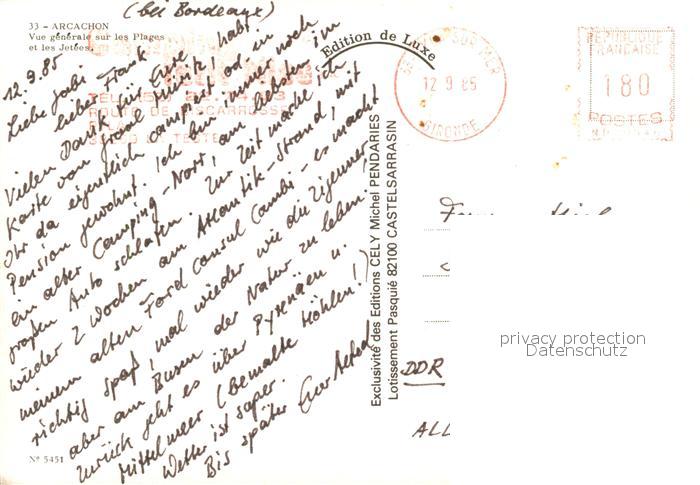 (bei Bordeaux)
33 - ARCACHON
Vue générale sur les Plages
et les Jetées.
12.9.85
Liebe Gabi
lieber Frank
Vielen Dank für Eure
Karte vom Groß Müritz! habt
Ihr da eigentlich campiert od. in
Pension gewohnt. Ich bin immer noch
ein alter Camping-Narr, am liebsten im
großen Auto schlafen. Zur Zeit mache ich
wieder 2 Wochen am Atlantik-Strand, mit
meinem alten Ford Consul Combi - es macht
richtig Spaß, mal wieder wie die Zigeuner
aber am Busen der Natur zu leben.
Zurück geht es über Pyrenäen u.
Mittelmeer (bemalte Höhlen!)
Wetter ist super.
Bis später Euer
Nº 5451
Edition de Luxe
Exclusivité des Editions CELY Michel PENDARIES
Lotissement Pasquié 82100 CASTELSARRASIN
ROUTE DE BISCARROSSE
12 9 85
GIRONDE
REPUBLIQUE
FRANCAISE
180
POSTES
DDR
ALL
privacy protection
Datenschutz